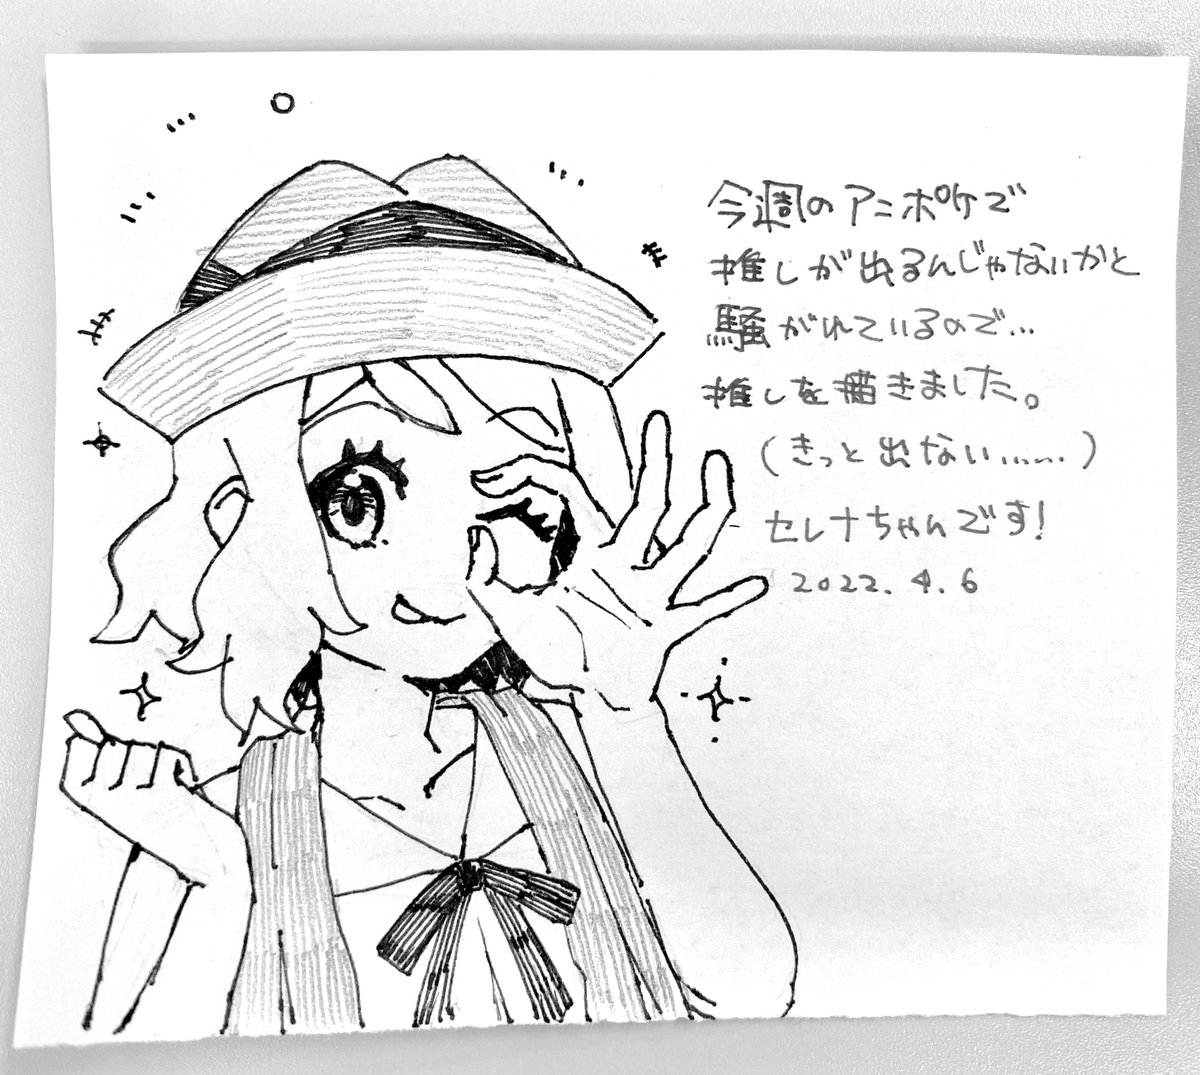 今週のアニポケで
推しが出るんじゃないかと
騒がれているので…
推しを描きました。
（きっと出ない……）
セレナちゃんです！
2022.4.6